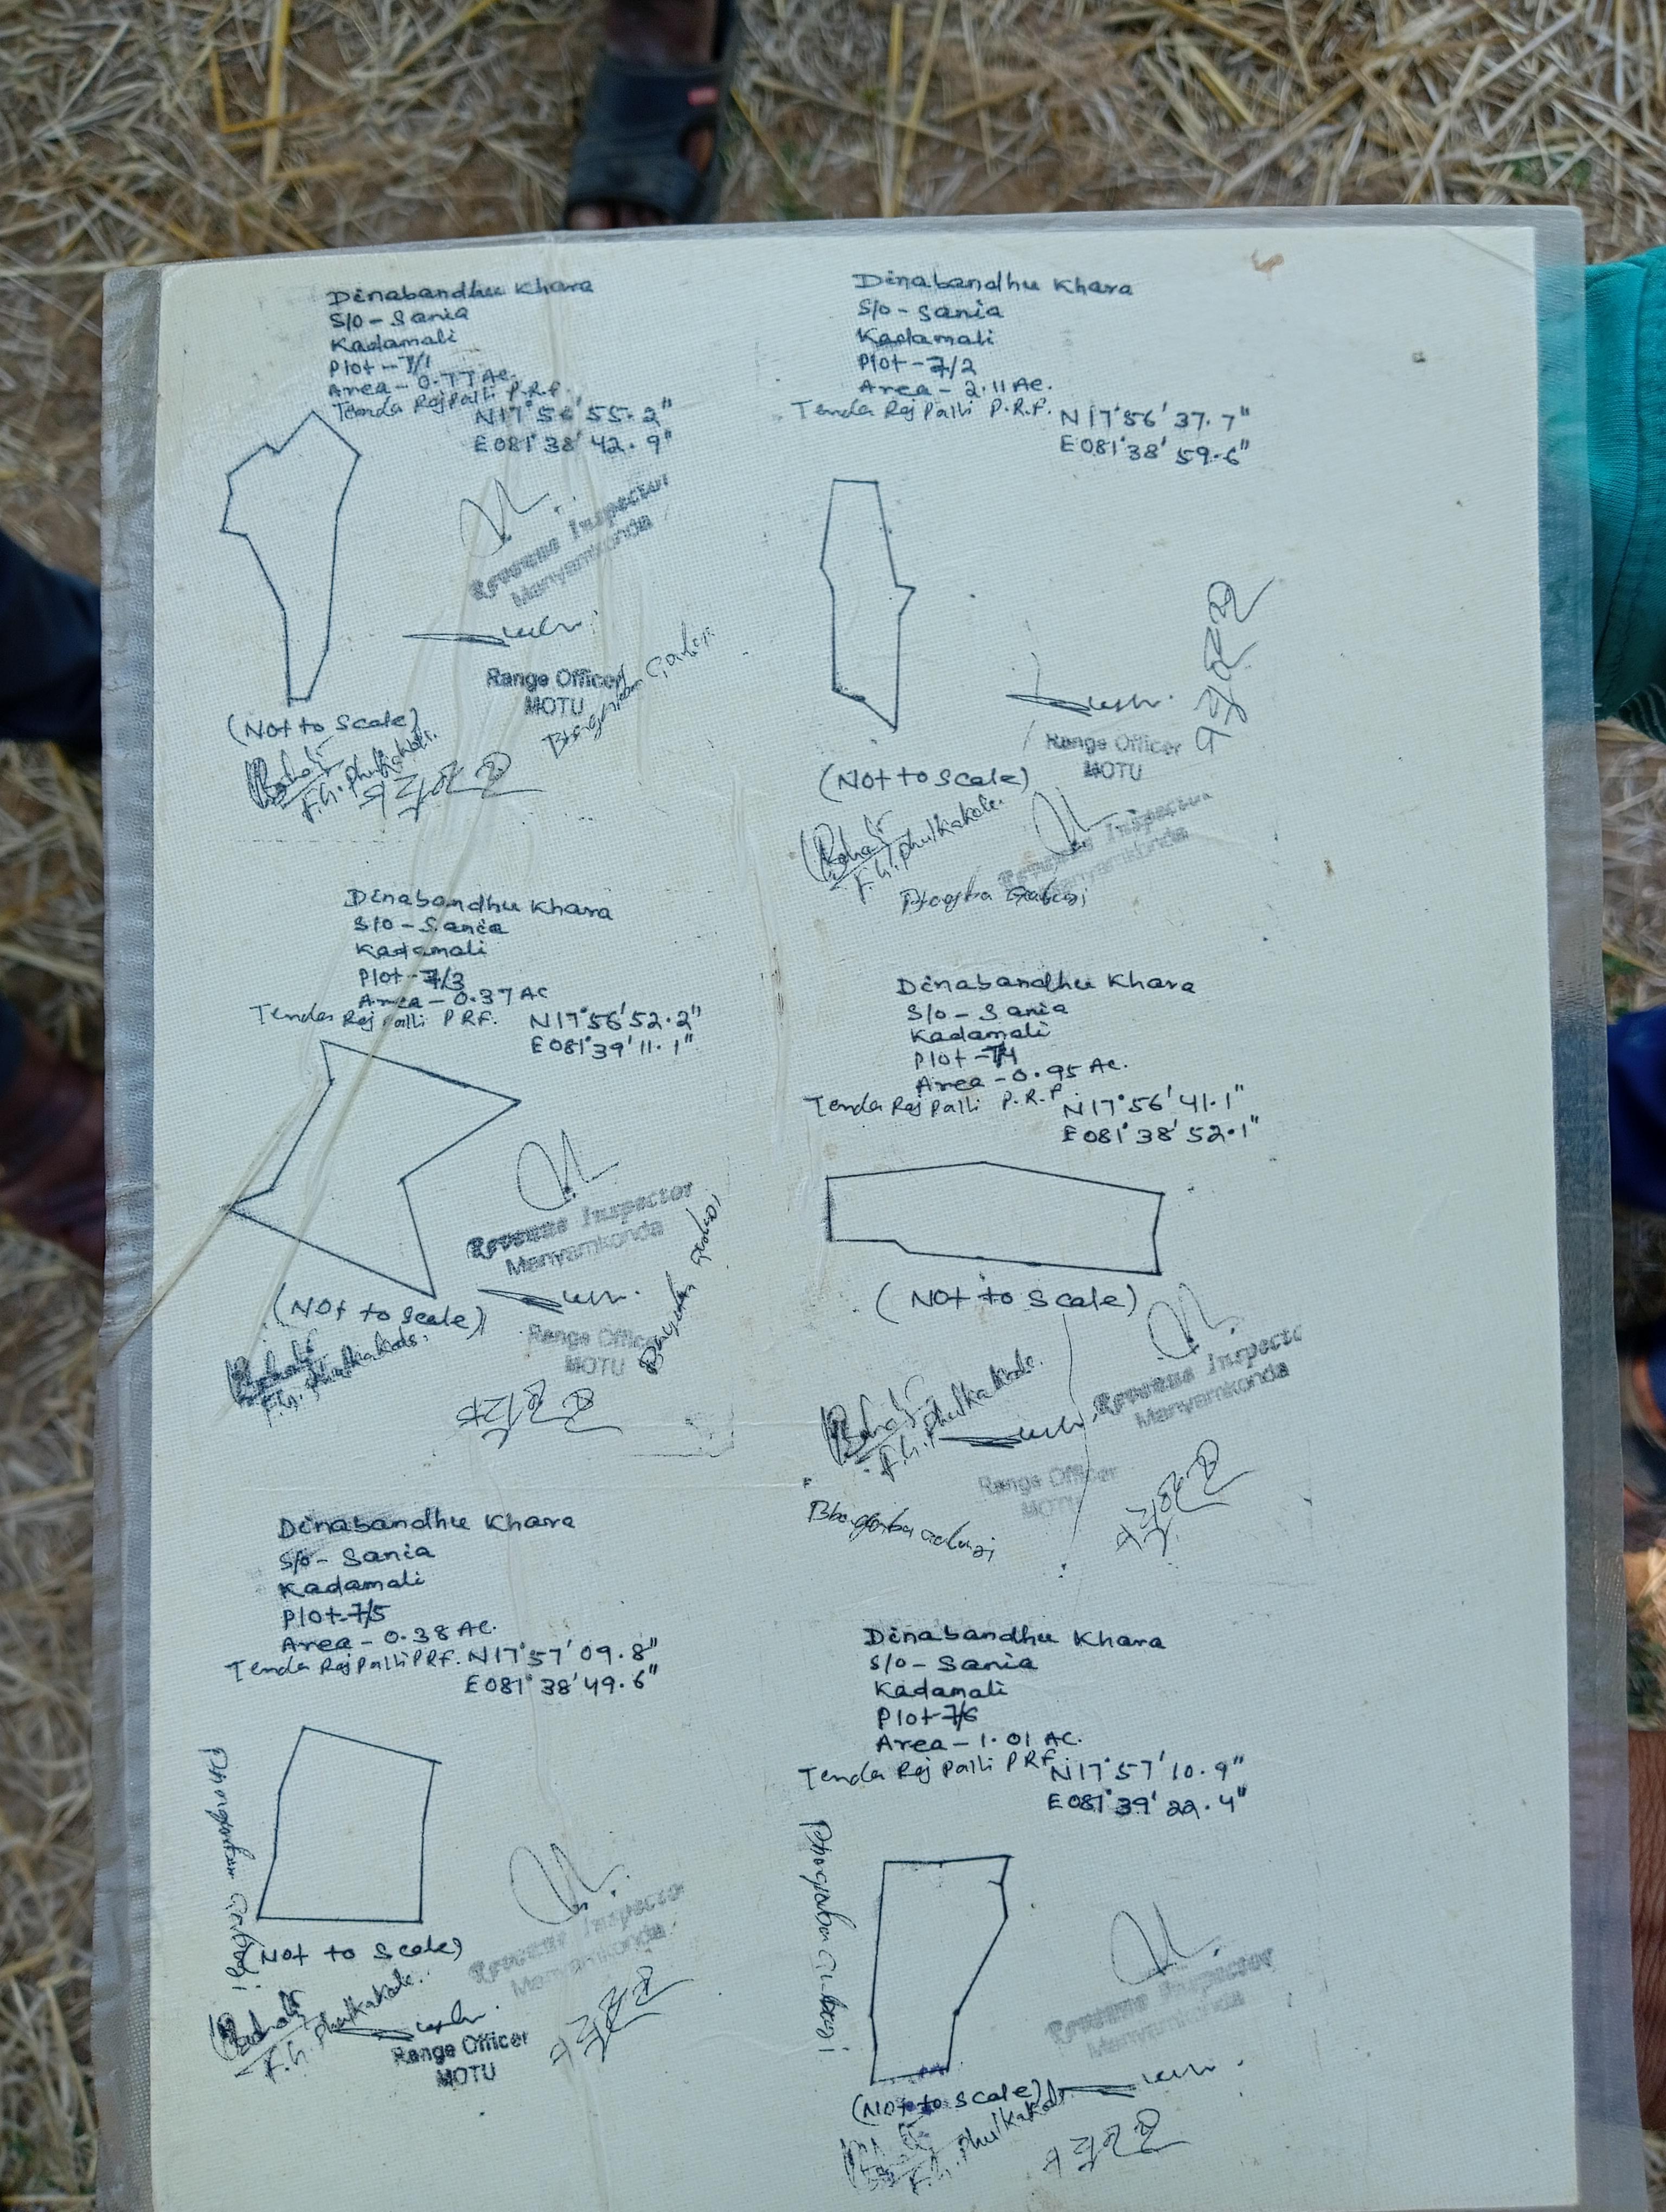 Dinabandhu Khara
S/o - Sania
Kadamali
Plot - 7/1
Area - 0.77 Ac.
Tenda Raj Palli P.R.F.
N17°56'55.2"
E081°38'42.9"
Revenue Inspector
Manyamkonda
Range Officer
MOTU
(Not to Scale)
F.G. Phulkakole.
Dinabandhu Khara
S/o - Sania
Kadamali
Plot - 7/2
Area - 2.11 Ac.
Tenda Raj Palli P.R.F.
N17°56'37.7"
E081°38'59.6"
Range Officer
MOTU
(Not to Scale)
F.G. Phulkakole.
Revenue Inspector
Manyamkonda
Dinabandhu Khara
S/o - Sania
Kadamali
Plot - 7/3
Area - 0.37 AC
Tenda Raj Palli P.R.F.
N17°56'52.2"
E081°39'11.1"
Revenue Inspector
Manyamkonda
(Not to Scale)
Range Officer
MOTU
Dinabandhu Khara
S/o - Sania
Kadamali
Plot - 7/4
Area - 0.95 Ac.
Tenda Raj Palli P.R.F.
N17°56'41.1"
E081°38'52.1"
(Not to Scale)
Revenue Inspector
Manyamkonda
Range Officer
MOTU
Dinabandhu Khara
S/o - Sania
Kadamali
Plot - 7/5
Area - 0.38 AC.
Tenda Raj Palli PRF.
N17°57'09.8"
E081°38'49.6"
(Not to Scale)
Revenue Inspector
Manyamkonda
Range Officer
MOTU
Dinabandhu Khara
S/o - Sania
Kadamali
Plot - 7/6
Area - 1.01 AC.
Tenda Raj Palli PRF.
N17°57'10.9"
E081°39'22.4"
Revenue Inspector
Manyamkonda
(Not to Scale)